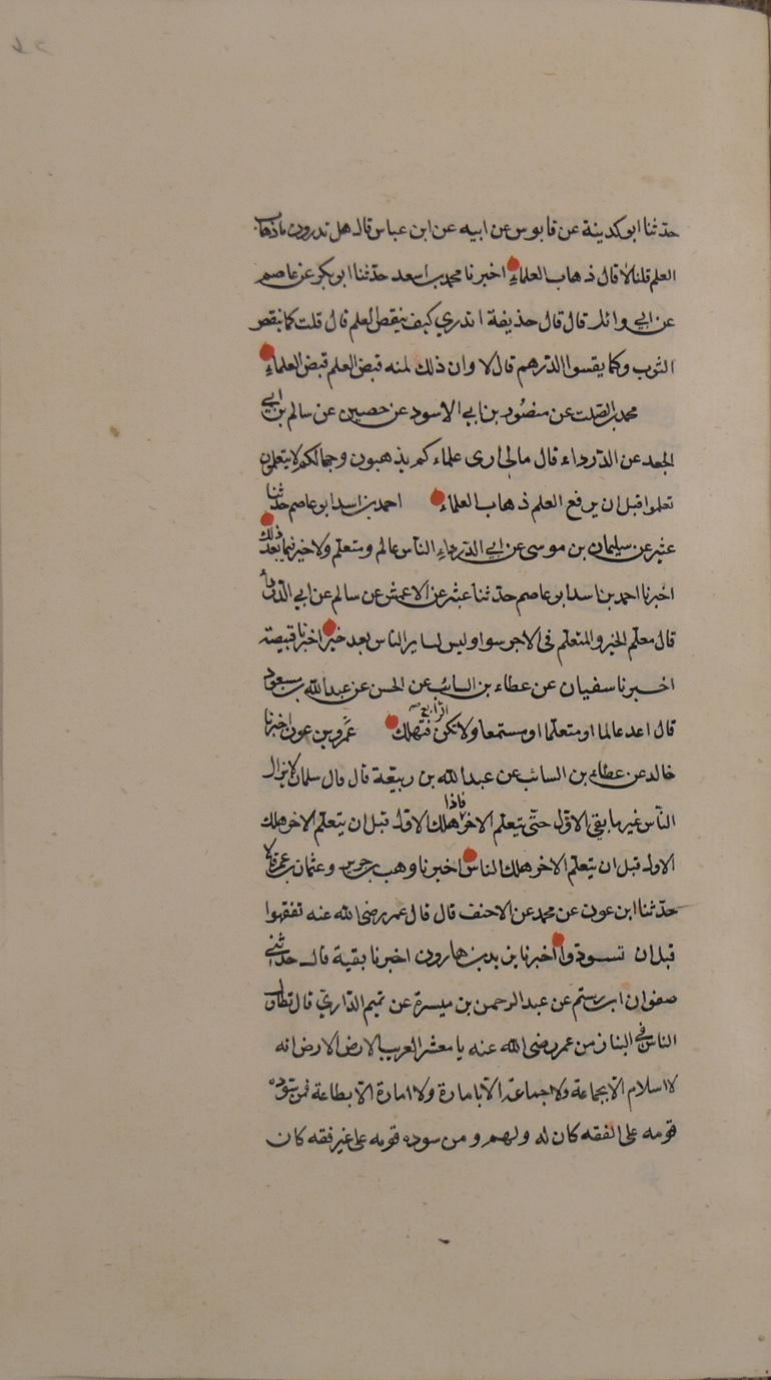 حدثنا ابو كدينة عن قابوس عن ابيه عن ابن عباس قال هل تدرون ما ذهاب
العلم قلنا لا قال ذهاب العلماء اخبرنا محمد بن اسعد حدثنا ابو بكر عن عاصم
عن ابي وائل قال قال حذيفة اتدري كيف ينقص العلم قال قلت كما ينقص
الثوب وكما يقسوا الدرهم قال لا وان ذلك لمنه قبض العلم قبض العلماء
محمد بن الصلت عن منصور بن ابي الاسود عن حصين عن سالم بن ابي
الجعد عن الدرداء قال مالي ارى علماءكم يذهبون وجهالكم لا يتعلمون
تعلموا قبل ان يرفع العلم ذهاب العلماء احمد بن اسد ابو عاصم حدثنا
عبثر عن سليمان بن موسى عن ابي الدرداء الناس عالم ومتعلم ولا خير فيما بعد ذلك
اخبرنا احمد بن اسد ابو عاصم حدثنا عبثر عن الاعمش عن سالم عن ابي الدرداء
قال معلم الخير والمتعلم في الاجر سوا وليس لساير الناس بعد خير اخبرنا قبيصة
اخبرنا سفيان عن عطاء بن السائب عن الحسن عن عبد الله بن مسعود
قال اغد عالما او متعلما او مستمعا ولا تكن الرابع فتهلك عمرو بن عون اخبرنا
خالد عن عطاء بن السائب عن عبد الله بن ربيعة قال قال سلمان لا يزال
الناس بخير ما بقي الاول حتى يتعلم الاخر فاذا هلك الاول قبل ان يتعلم الاخر هلك
الاول قبل ان يتعلم الاخر هلك الناس اخبرنا وهب بن جرير وعثمان بن عمر قالا
حدثنا ابن عون عن محمد عن الاحنف قال قال عمر رضي الله عنه تفقهوا
قبل ان تسودوا اخبرنا يزيد بن هارون اخبرنا بقية قال حدثني
صفوان ابن رستم عن عبد الرحمن بن ميسرة عن تميم الداري قال تطاول
الناس في البنا زمن عمر رضي الله عنه يا معشر العريب الارض الارض انه
لا اسلام الا بجماعة ولا جماعة الا بامارة ولا امارة الا بطاعة فمن سوده
قومه على الفقه كان له ولهم ومن سوده قومه على غير فقه كان